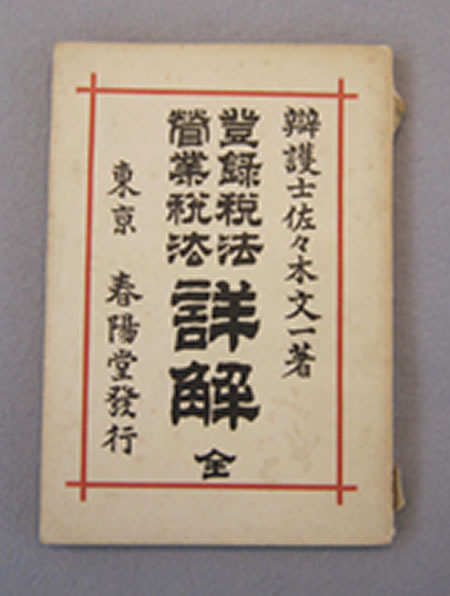 辯護士佐々木文一著
登録税法
營業税法
詳解
全
東京 春陽堂發行